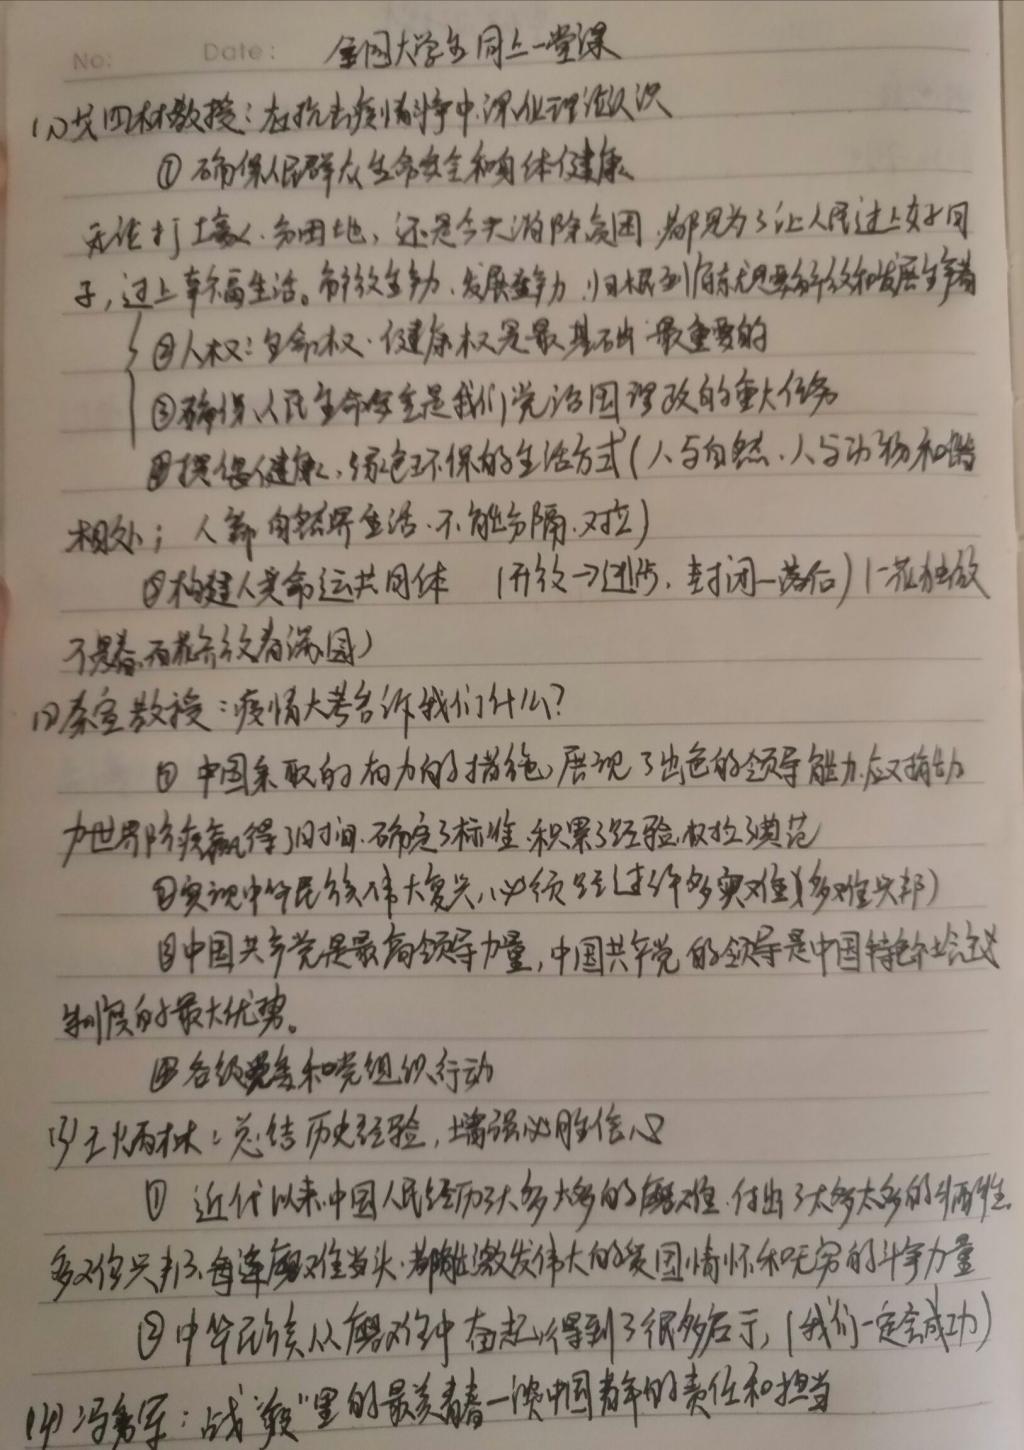 No: Date: 全国大学生同上一堂课
(1)艾四林教授：在抗击疫情斗争中深化理论认识
①确保人民群众生命安全和身体健康
无论打土豪、分田地，还是今天消除贫困，都是为了让人民过上好日
子，过上幸福生活。解放生产力、发展生产力，归根到底就是要解放和发展生产者
②人权：生命权、健康权是最基础 最重要的
③确保人民生命安全是我们党治国理政的重大任务
④提倡健康、绿色环保的生活方式(人与自然、人与动物和谐
相处；人靠自然界生活、不能分隔、对立)
⑤构建人类命运共同体 (开放→进步，封闭—落后)(一花独放
不是春，百花齐放春满园)
(2)秦宣教授：疫情大考告诉我们什么？
①中国采取的有力的措施，展现了出色的领导能力、应对能力
为世界防疫赢得了时间、确定了标准、积累了经验、树立了典范
②实现中华民族伟大复兴，必须经过许多灾难(多难兴邦)
③中国共产党是最高领导力量，中国共产党的领导是中国特色社会主义
制度的最大优势。
④各级党委和党组织行动
(3)王炳林：总结历史经验，增强必胜信心
①近代以来中国人民经历了太多太多的磨难，付出了太多太多的牺牲。
多难兴邦，每逢磨难当头，都能激发伟大的爱国情怀和无穷的斗争力量
②中华民族从磨难中奋起，得到了很多启示，(我们一定会成功)
(4)冯秀军：战“疫”里的最美青春—谈中国青年的责任和担当